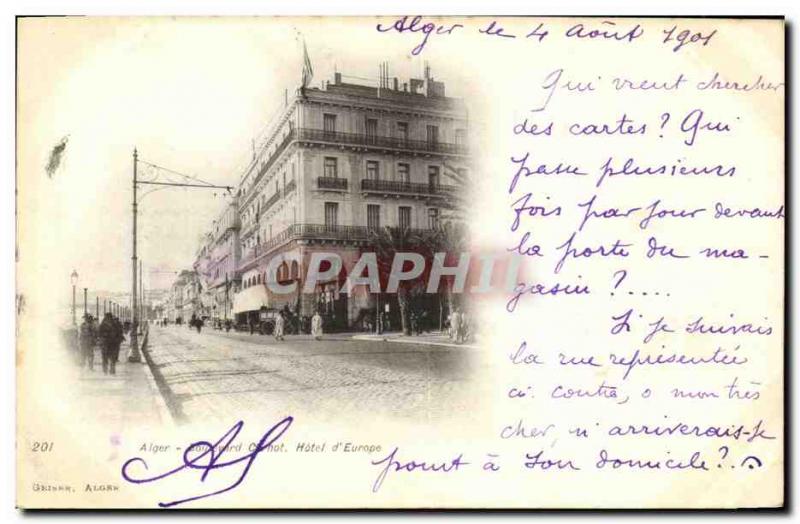 Alger le 4 Août 1901
Qui vient chercher
des cartes? Qui
passe plusieurs
fois par jour devant
la porte du ma-
gasin?....
Si je suivais
la rue représentée
ci. contre, o mon très
cher, n'arriverais-je
point à son domicile?.
CPARPHIL
201 Alger - Boulevard Carnot. Hôtel d'Europe
GEISER, ALGER